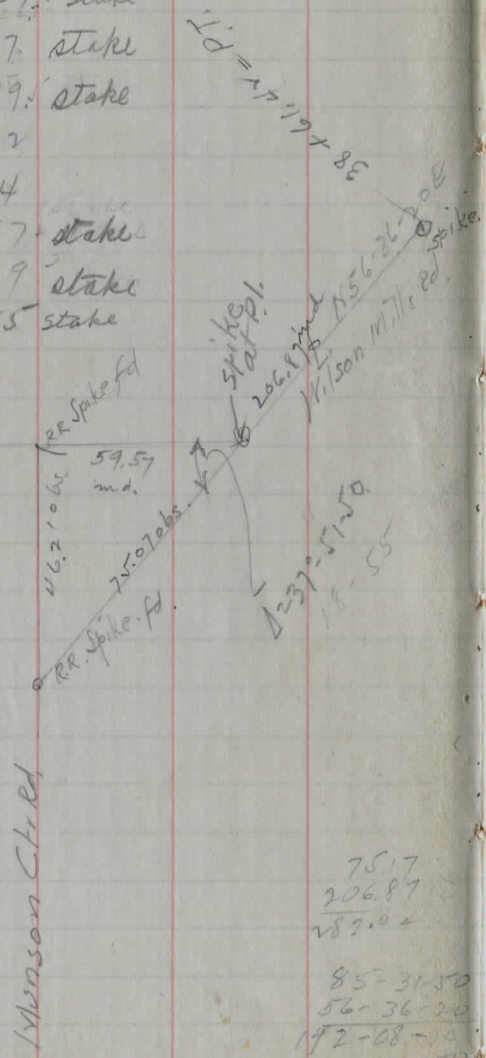 7. stake
9.5 stake
2
4
7 stake
9 stake
5 stake
38 + 61.44 = P.T.
spike.
N.56-36-20E
Wilson Mills Rd.
206.87 md
spike
at P.I.
RR Spike fd
59.57
md.
46.21 obs.
75.07 obs.
R.R. Spike. fd.
Δ=37°-51-50
18-55
Munson Ctr Rd
75.17
206.87
282.04
85-31-50
56-36-20
142-08-10